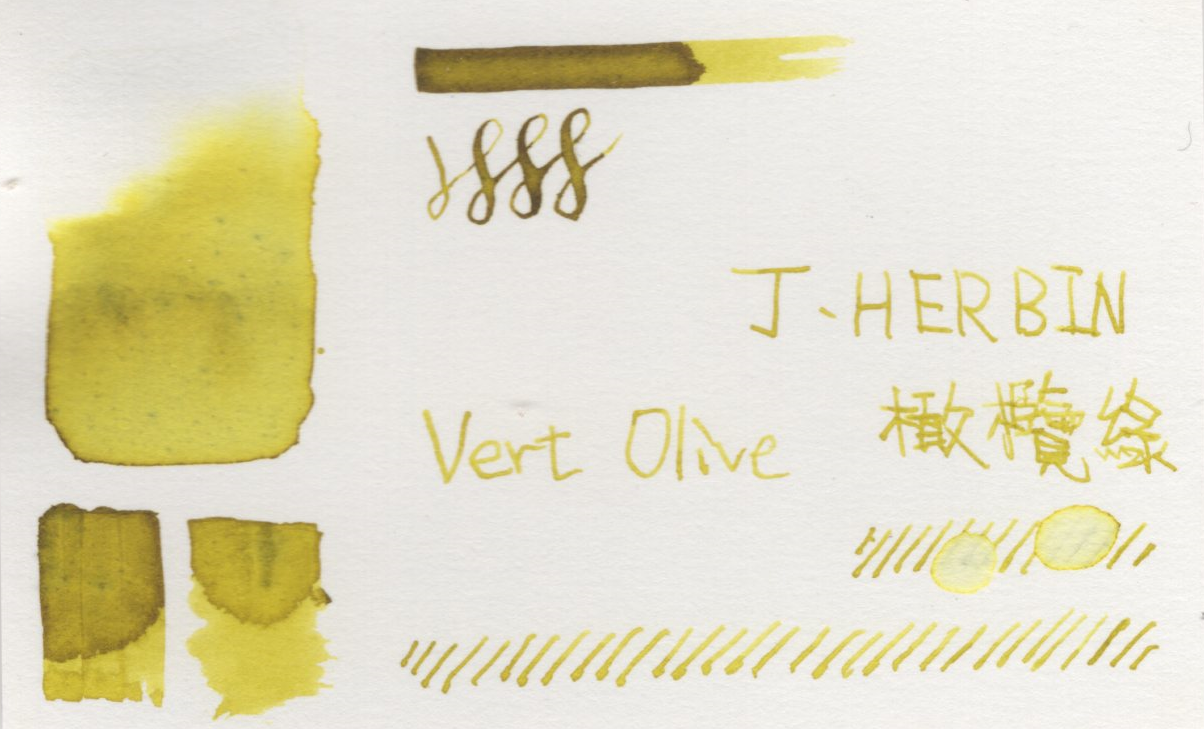 J. HERBIN
橄欖綠
Vert Olive